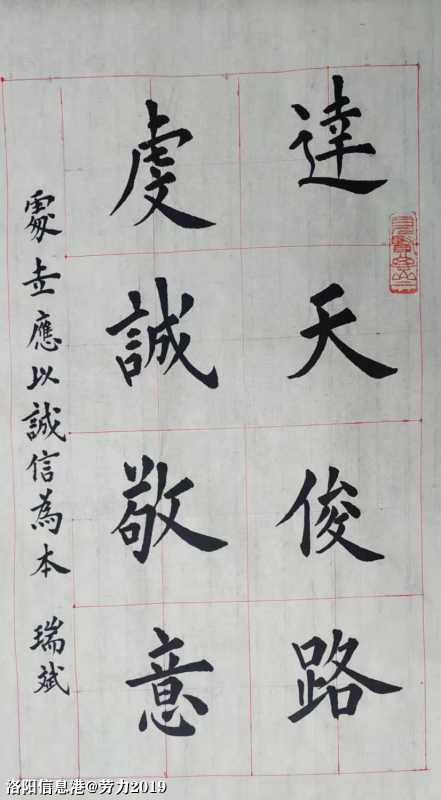 達天俊路
虔誠敬意
處世應以誠信為本 瑞斌
洛阳信息港@劳力2019